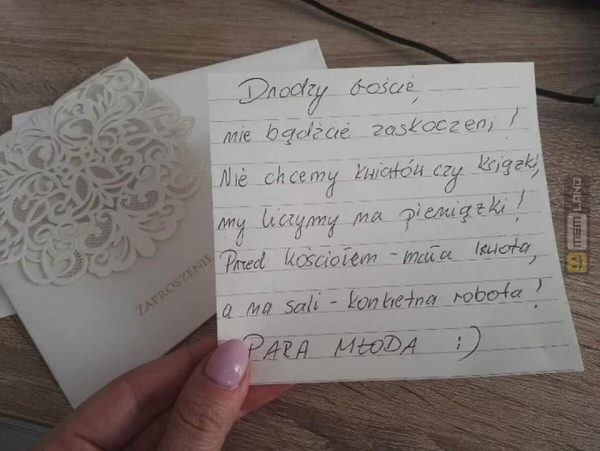 Drodzy Goście,
nie bądźcie zaskoczeni!
Nie chcemy kwiatów czy książki,
my liczymy na pieniążki!
Przed kościołem - mała kwota,
a na sali - konkretna robota!
PARA MŁODA ;)
ZAPROSZENIE
MEMLAND